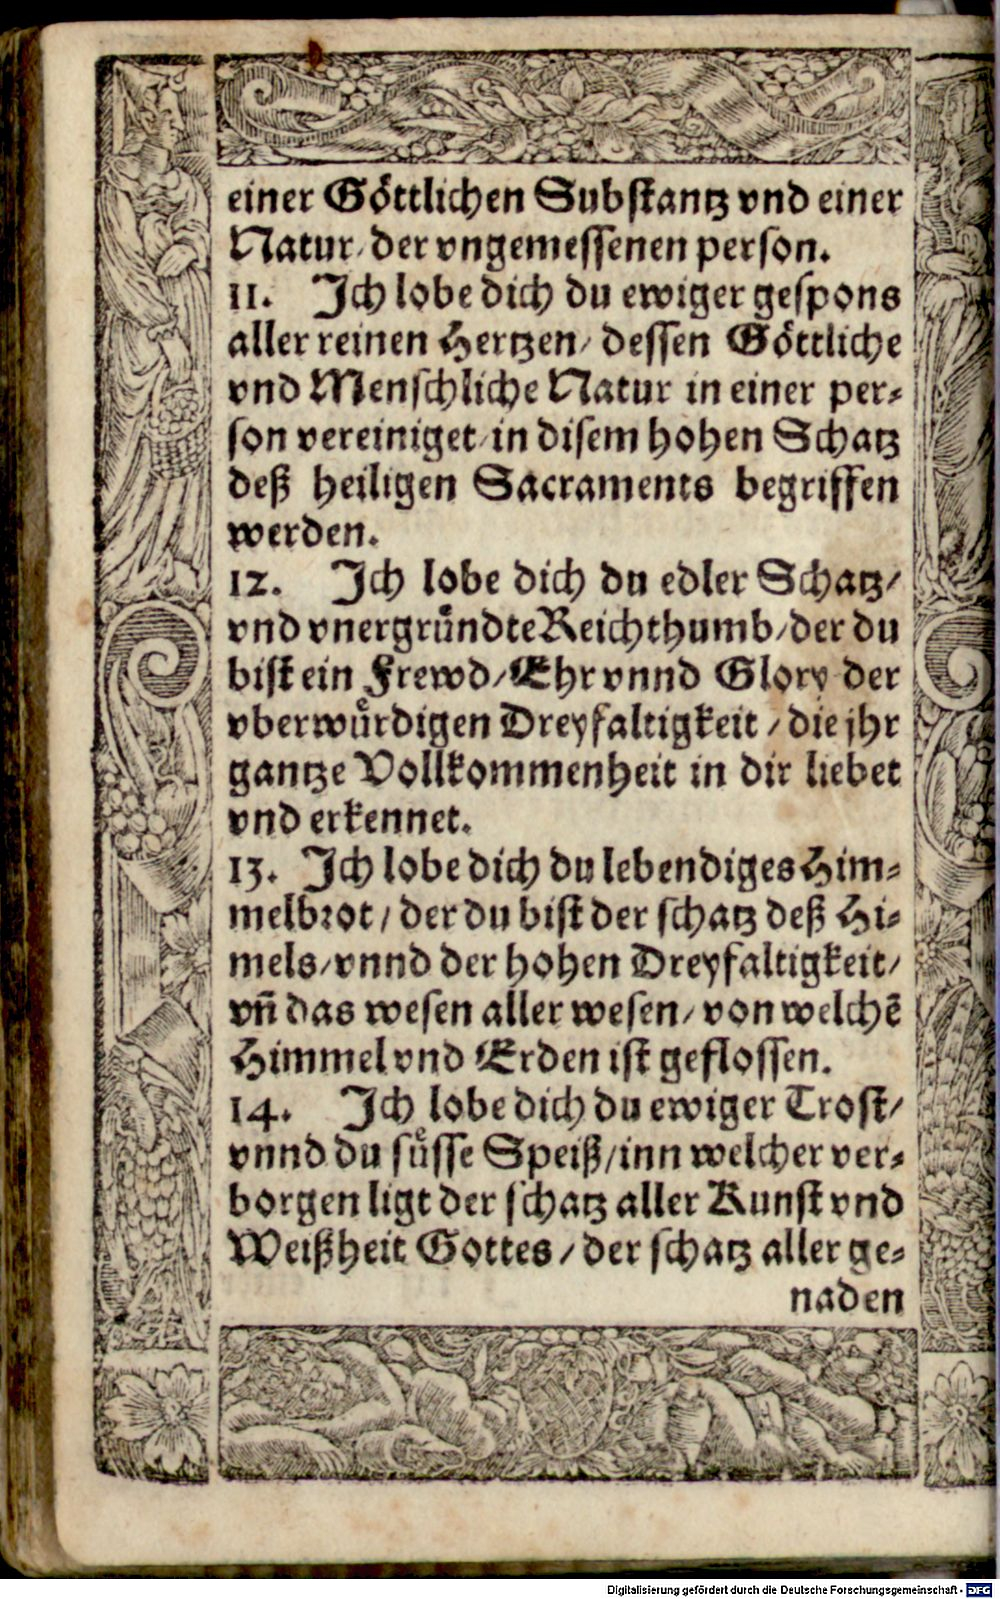 einer Göttlichen Substantz vnd einer
Natur/ der vngemessenen person.
11. Ich lobe dich du ewiger gespons
aller reinen Hertzen/ dessen Göttliche
vnd Menschliche Natur in einer per-
son vereiniget/ in disem hohen Schatz
deß heiligen Sacraments begriffen
werden.
12. Ich lobe dich du edler Schatz/
vnd vnergründte Reichthumb/ der du
bist ein Frewd/ Ehr vnnd Glory der
vberwürdigen Dreyfaltigkeit/ die jhr
gantze Vollkommenheit in dir liebet
vnd erkennet.
13. Ich lobe dich du lebendiges Him-
melbrot/ der du bist der schatz deß Hi-
mels/ vnnd der hohen Dreyfaltigkeit/
vn̄ das wesen aller wesen/ von welchē
Himmel vnd Erden ist geflossen.
14. Ich lobe dich du ewiger Trost/
vnnd du süsse Speiß/ inn welcher ver-
borgen ligt der schatz aller Kunst vnd
Weißheit Gottes/ der schatz aller ge-
naden
Digitalisierung gefördert durch die Deutsche Forschungsgemeinschaft - DFG